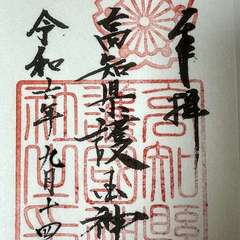 奉拝
高知県護国神
令和六年九月十四